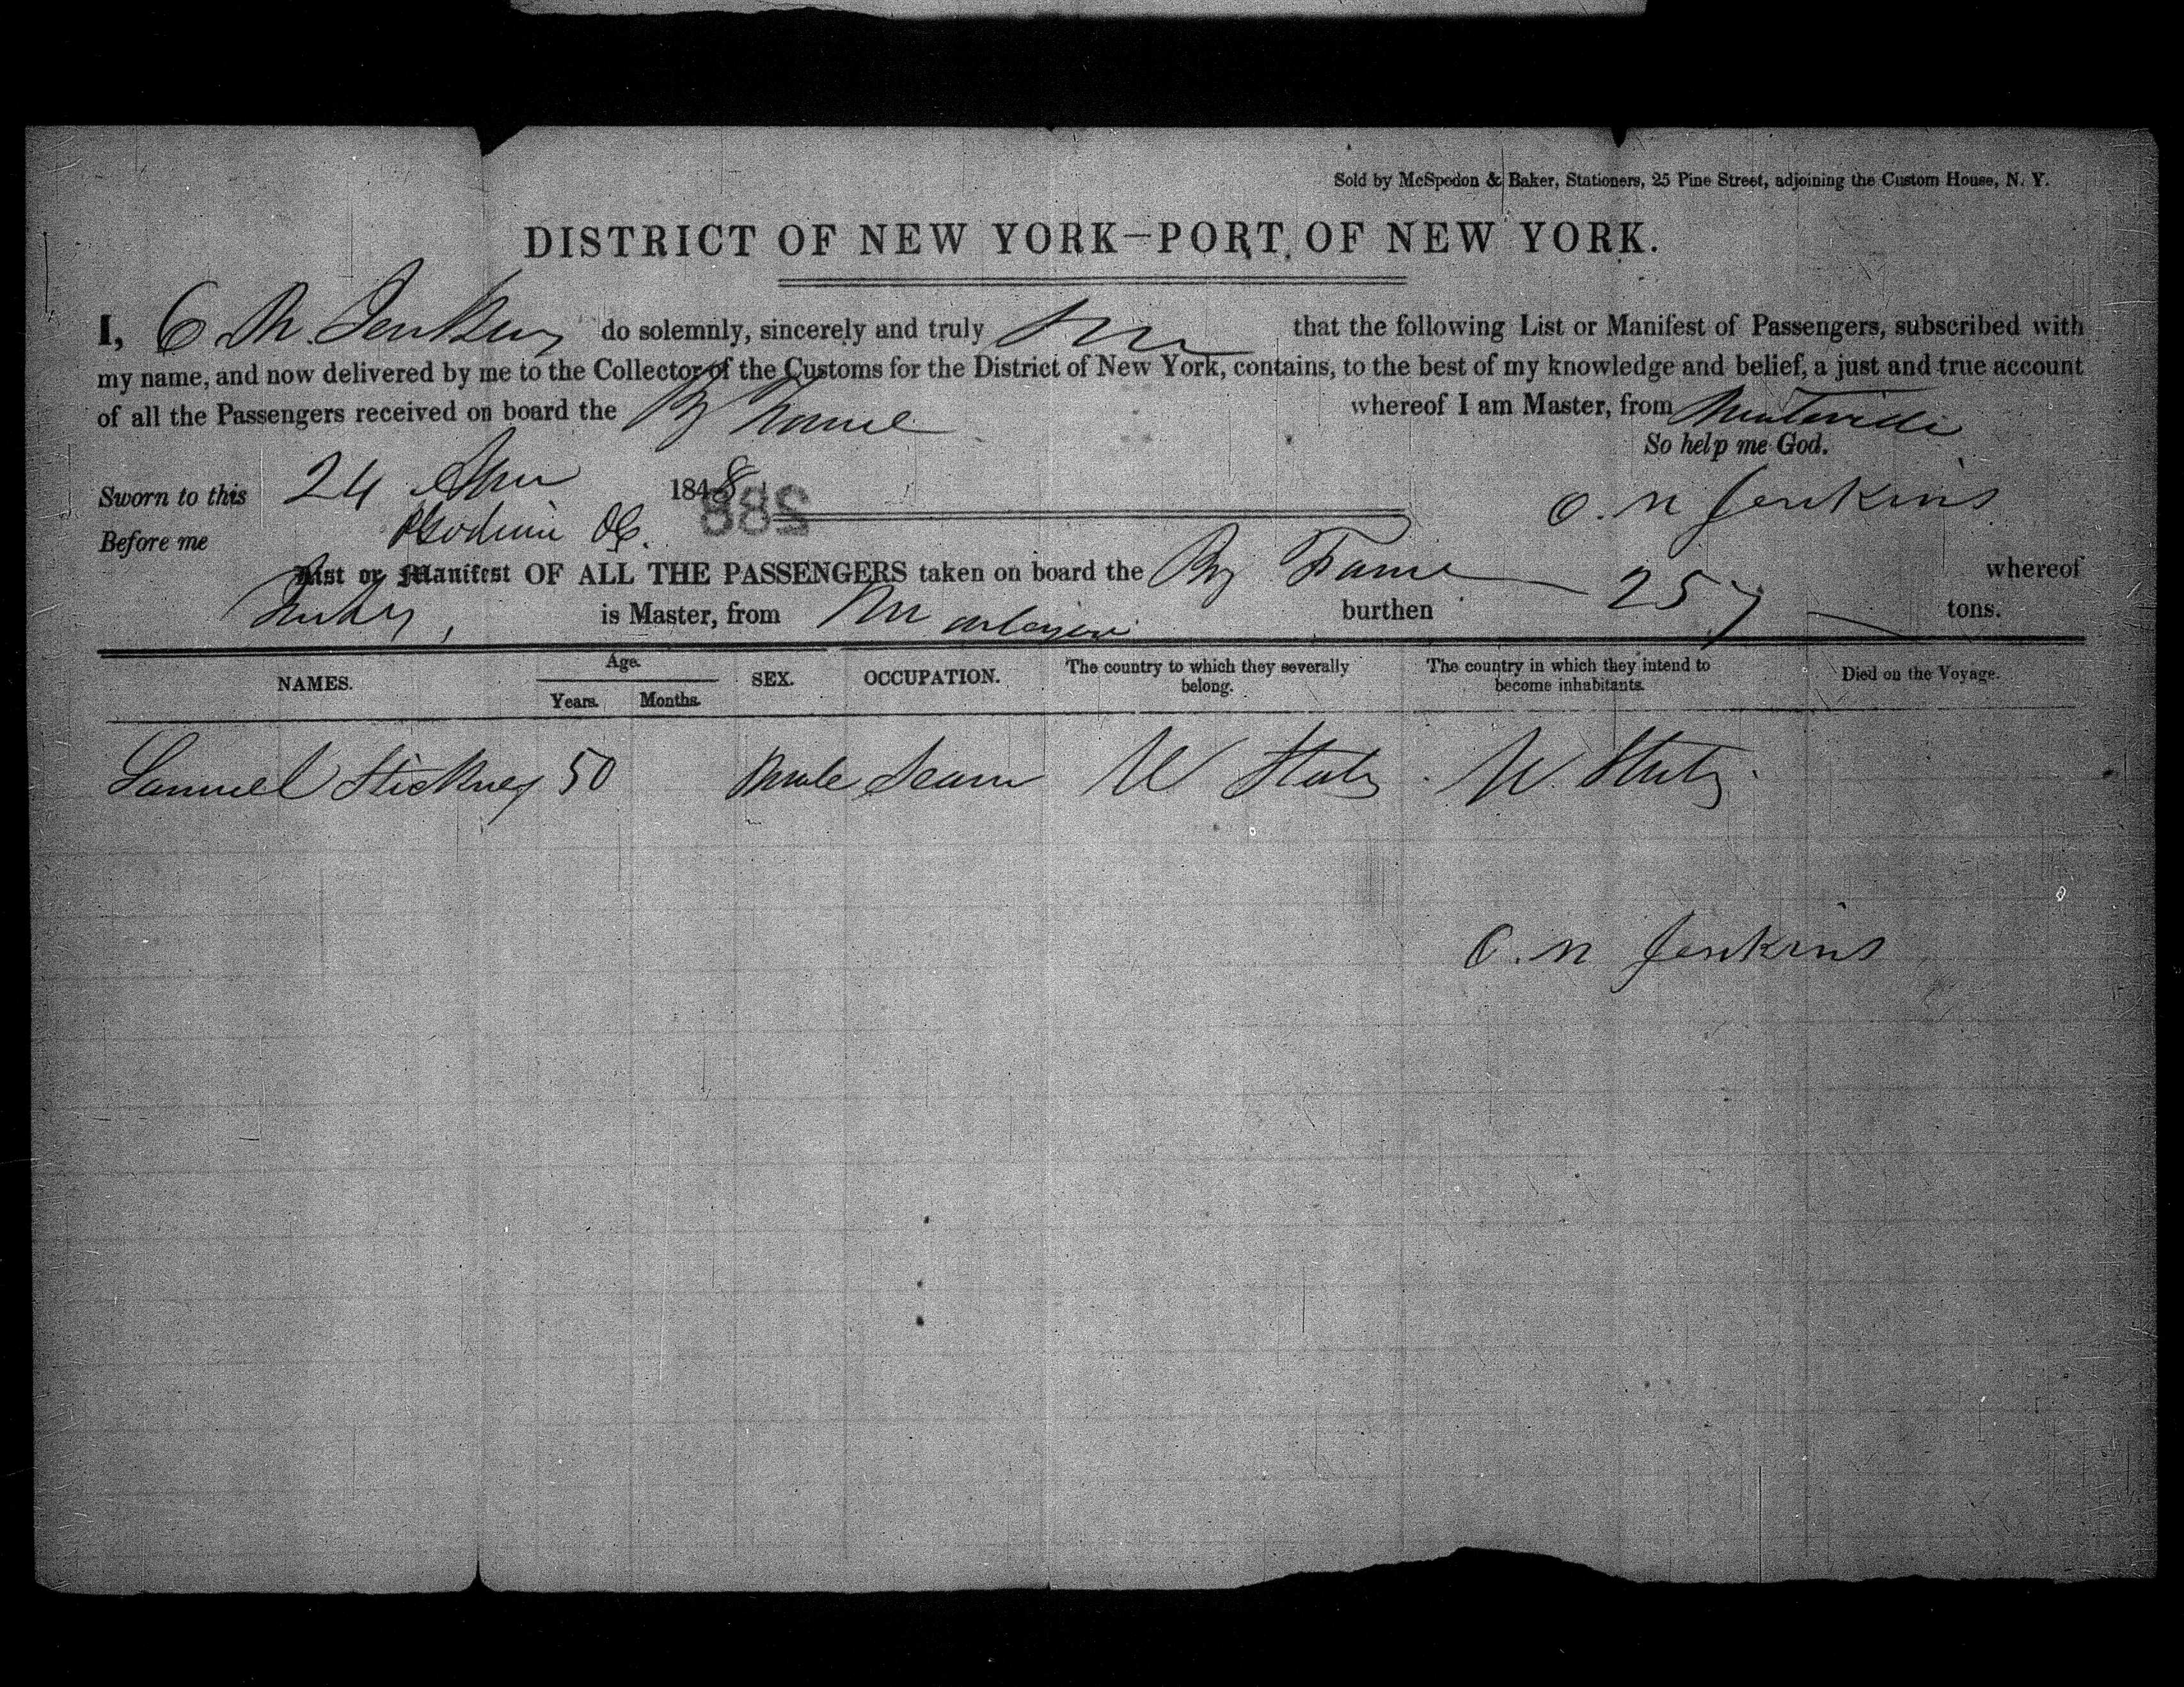 Sold by McSpedon & Baker, Stationers, 25 Pine Street, adjoining the Custom House, N. Y.
DISTRICT OF NEW YORK—PORT OF NEW YORK.
I, C N. Jenkins do solemnly, sincerely and truly that the following List or Manifest of Passengers, subscribed with
my name, and now delivered by me to the Collector of the Customs for the District of New York, contains, to the best of my knowledge and belief, a just and true account
of all the Passengers received on board the Bg Fame whereof I am Master, from Montevideo
So help me God.
Sworn to this 24 1848 O. N Jenkins
Before me
288
List or Manifest OF ALL THE PASSENGERS taken on board the Brg Fame whereof
is Master, from burthen 257 tons.
NAMES. Age. Years. Months. SEX. OCCUPATION. The country to which they severally belong. The country in which they intend to become inhabitants. Died on the Voyage.
Samuel Stickney 50 Male Seam U States U. States.
O. N Jenkins